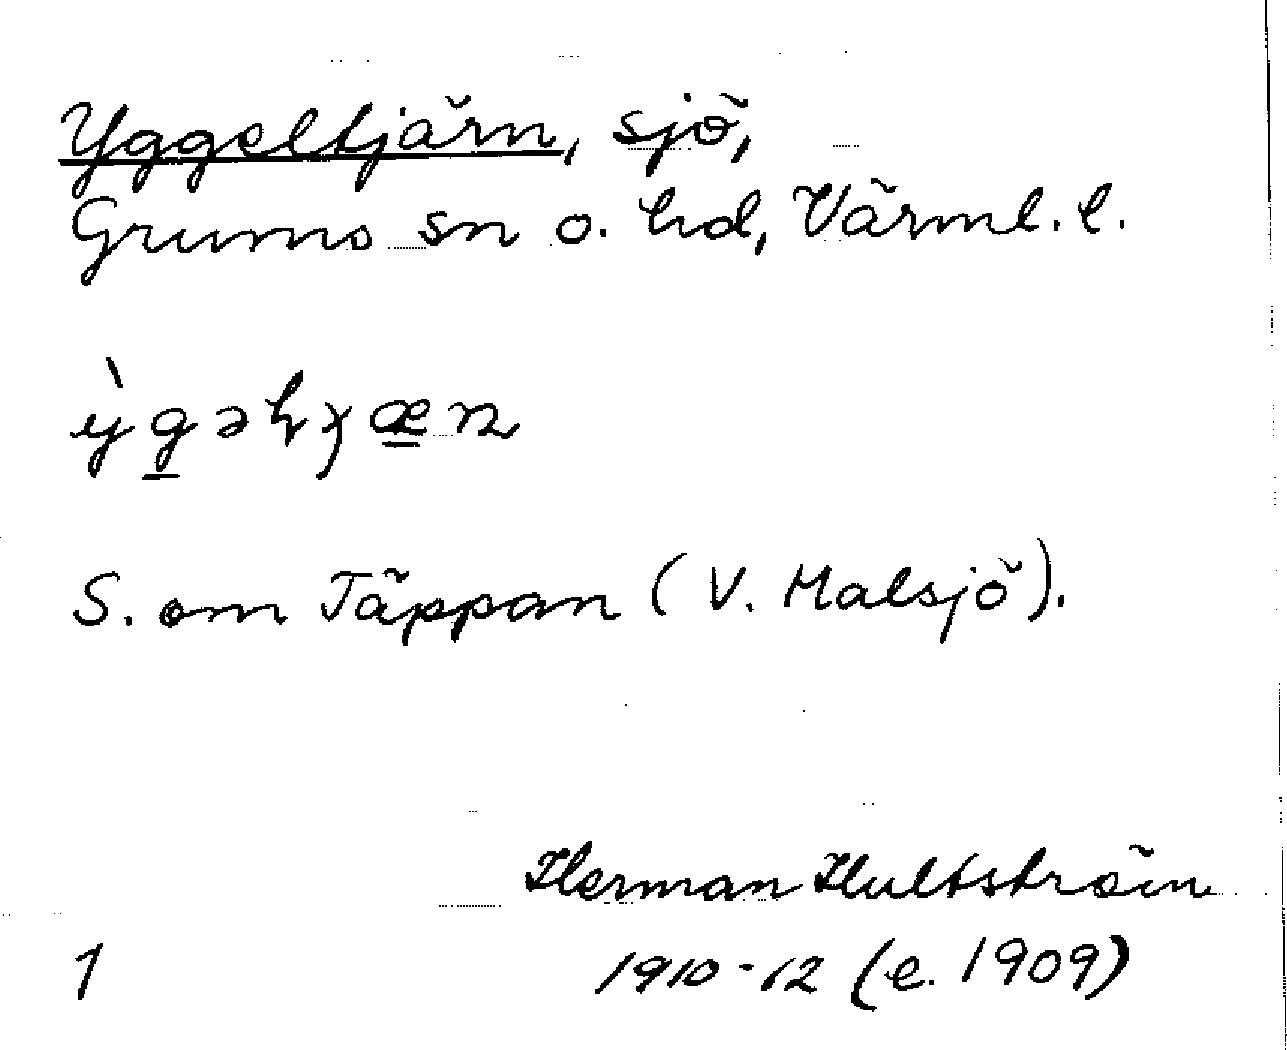 Yggeltjärn, sjö,
Grums sn o. hd, Värml. l.
ỳgəɫɟæn
S. om Täppan (V. Malsjö).
Herman Hultström
1910-12 (e. 1909)
1